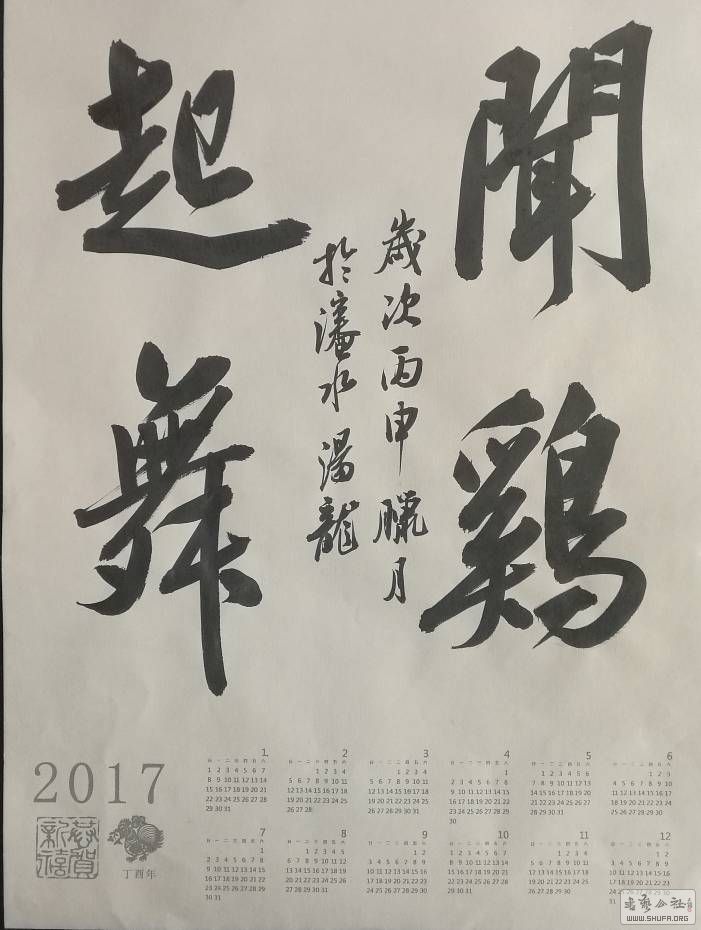 聞鷄
起舞
歲次丙申臘月
於瀋水 湯龍
2017
恭賀新禧
丁酉年
1
日 一 二 三 四 五 六
1 2 3 4 5 6 7
8 9 10 11 12 13 14
15 16 17 18 19 20 21
22 23 24 25 26 27 28
29 30 31
2
日 一 二 三 四 五 六
1 2 3 4
5 6 7 8 9 10 11
12 13 14 15 16 17 18
19 20 21 22 23 24 25
26 27 28
3
日 一 二 三 四 五 六
1 2 3 4
5 6 7 8 9 10 11
12 13 14 15 16 17 18
19 20 21 22 23 24 25
26 27 28 29 30 31
4
日 一 二 三 四 五 六
1
2 3 4 5 6 7 8
9 10 11 12 13 14 15
16 17 18 19 20 21 22
23 24 25 26 27 28 29
30
5
日 一 二 三 四 五 六
1 2 3 4 5 6
7 8 9 10 11 12 13
14 15 16 17 18 19 20
21 22 23 24 25 26 27
28 29 30 31
6
日 一 二 三 四 五 六
1 2 3
4 5 6 7 8 9 10
11 12 13 14 15 16 17
18 19 20 21 22 23 24
25 26 27 28 29 30
7
日 一 二 三 四 五 六
1
2 3 4 5 6 7 8
9 10 11 12 13 14 15
16 17 18 19 20 21 22
23 24 25 26 27 28 29
30 31
8
日 一 二 三 四 五 六
1 2 3 4 5
6 7 8 9 10 11 12
13 14 15 16 17 18 19
20 21 22 23 24 25 26
27 28 29 30 31
9
日 一 二 三 四 五 六
1 2
3 4 5 6 7 8 9
10 11 12 13 14 15 16
17 18 19 20 21 22 23
24 25 26 27 28 29 30
10
日 一 二 三 四 五 六
1 2 3 4 5 6 7
8 9 10 11 12 13 14
15 16 17 18 19 20 21
22 23 24 25 26 27 28
29 30 31
11
日 一 二 三 四 五 六
1 2 3 4
5 6 7 8 9 10 11
12 13 14 15 16 17 18
19 20 21 22 23 24 25
26 27 28 29 30
12
日 一 二 三 四 五 六
1 2
3 4 5 6 7 8 9
10 11 12 13 14 15 16
17 18 19 20 21 22 23
24 25 26 27 28 29 30
31
WWW.SHUFA.ORG